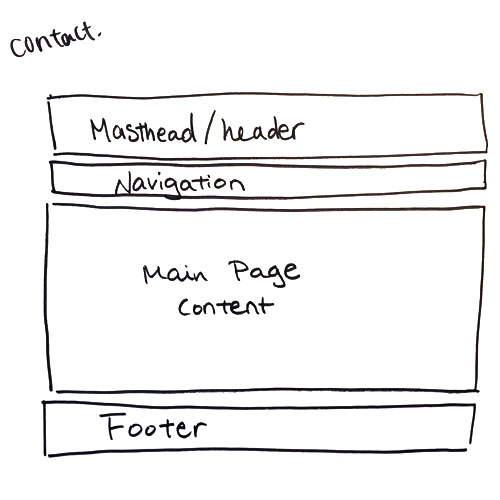 contact.
Masthead/header
Navigation
Main Page
Content
Footer